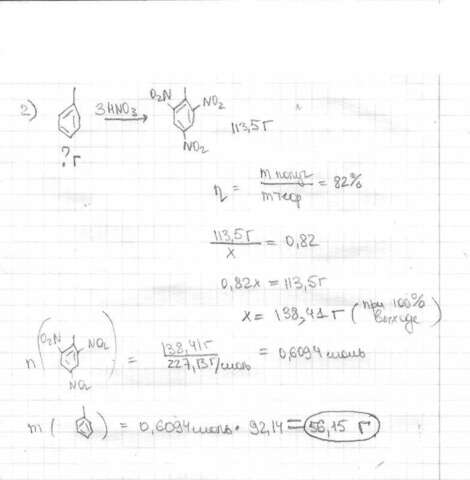 2) 3HNO₃ O₂N NO₂ NO₂ 113,5 г
? г
η = m получ / m теор = 82%
113,5 г / x = 0,82
0,82x = 113,5 г
x = 138,41 г (при 100% выходе)
n ( O₂N NO₂ NO₂ ) = 138,41 г / 227,13 г/моль = 0,6094 моль
m ( ) = 0,6094 моль · 92,14 = 56,15 г